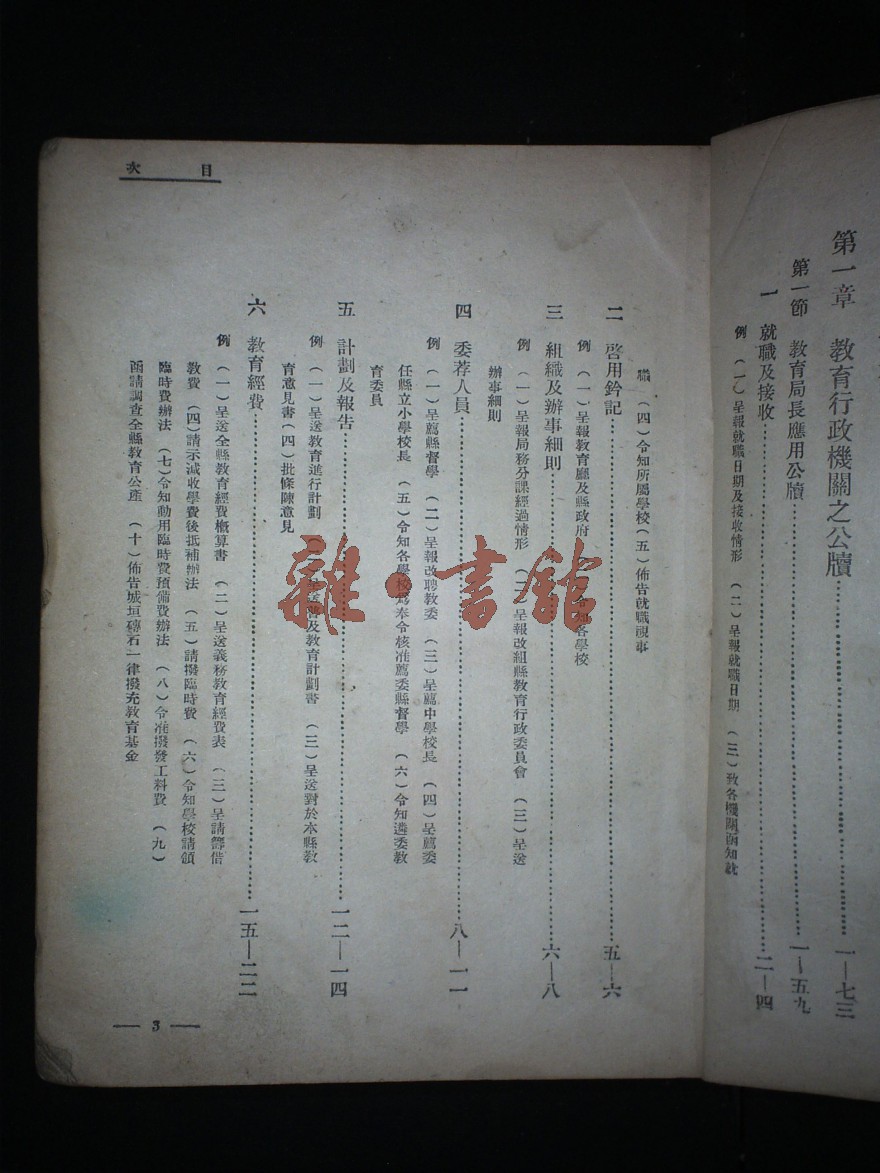 第一章　教育行政機關之公牘……一—七三
第一節　教育局長應用公牘……一—五九
一　就職及接收……二—四
例　（一）呈報就職日期及接收情形　（二）呈報就職日期　（三）致各機關函知就
目　次
職　（四）令知所屬學校（五）佈告就職視事
二　啓用鈐記……五—六
例　（一）呈報教育廳及縣政府　令知各學校
三　組織及辦事細則……六—八
例　（一）呈報局務分課經過情形　（二）呈報改組縣教育行政委員會　（三）呈送
辦事細則
四　委荐人員……八—一一
例　（一）呈薦縣督學　（二）呈報改聘教委　（三）呈薦中學校長　（四）呈薦委
任縣立小學校長　（五）令知各學校爲奉令核准薦委縣督學　（六）令知遴委教
育委員
五　計劃及報告……一二—一四
例　（一）呈送教育進行計劃　呈送普及教育計劃書　（三）呈送對於本縣教
育意見書（四）批條陳意見
六　教育經費……一五—二二
例　（一）呈送全縣教育經費概算書　（二）呈送義務教育經費表　（三）呈請籌借
教費　（四）請示減收學費後抵補辦法　（五）請撥臨時費　（六）令知學校請領
臨時費辦法　（七）令知動用臨時費預備費辦法　（八）令准撥發工料費　（九）
函請調查全縣教育公產　（十）佈告城垣磚石一律撥充教育基金
— 3 —
雜·書館